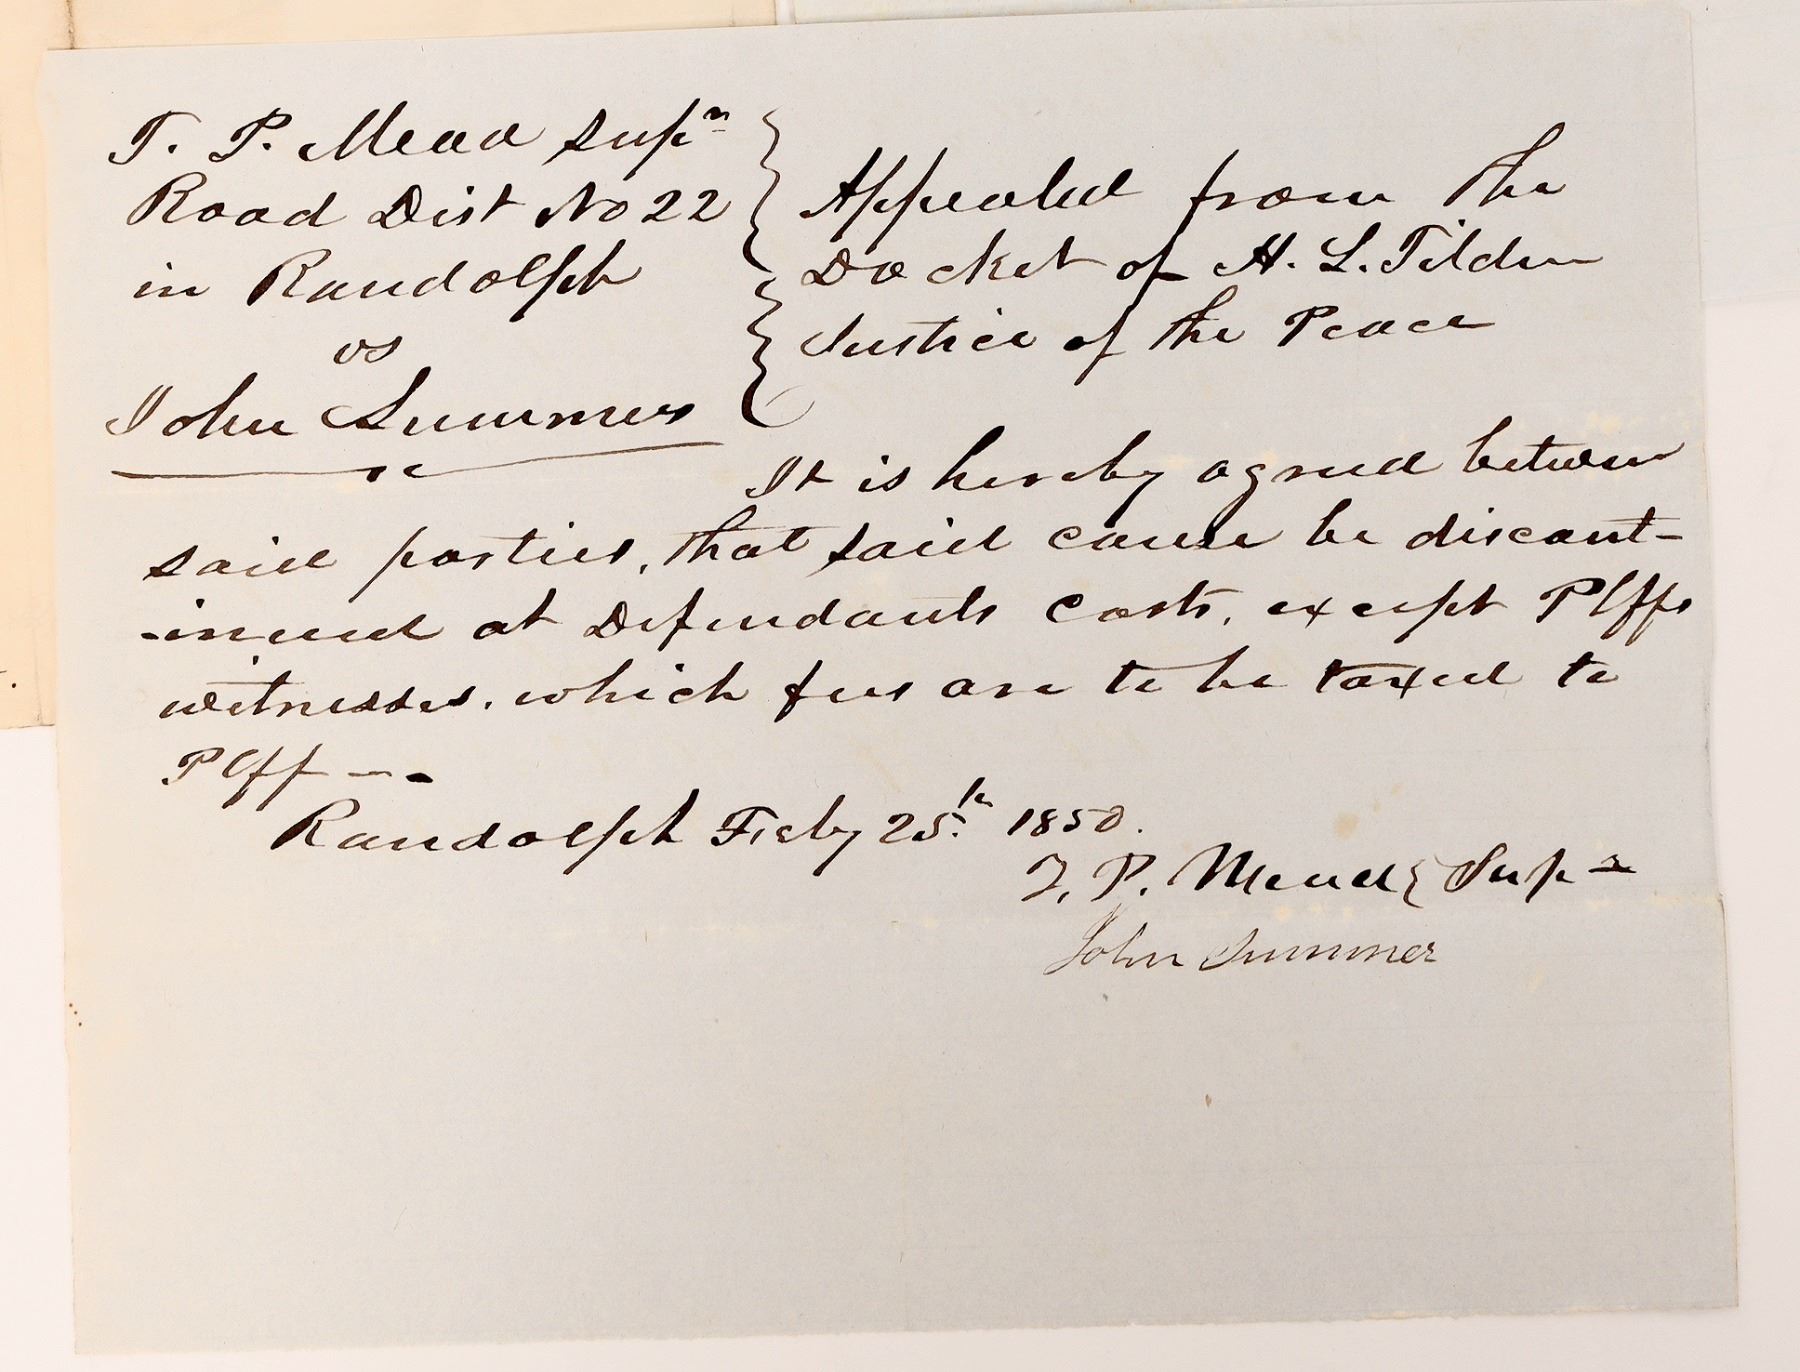 T. P. Mead Supr
Road Dist No 22
in Randolph
vs
John Summers
Appealed from the
Docket of H. L. Tilden
Justice of the Peace
It is hereby agreed between
said parties, that said cause be discont-
-inued at Defendants Costs, except Plffs
witnesses, which fees are to be taxed to
Plff ---
Randolph Feby 25th 1850.
T. P. Mead } Supr
John Summer